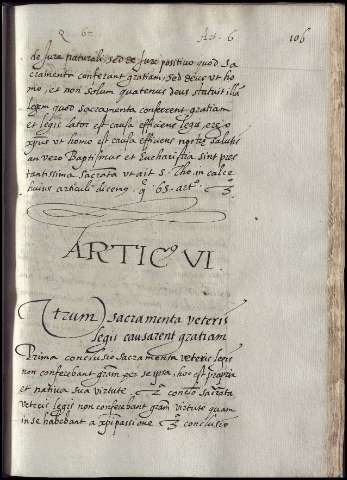 Q 62 Art. 6 106
de Jure naturali, sed de Jure positivo quod sa
cramenta conferant gratiam, sed deus ut ho
mo, et non solum quatenus deus statuit illã
legem quod sacramenta conferrent gratiam
et legis lator est causa efficiens legis, ergo
xpus ut homo est causa efficiens nostre salutis
an vero Baptismus et Eucharistia sint pres
tantissima sacrata ut ait S. Tho. in calce
huius articuli dicemo q. 65. artº. 3
ARTICº VI
Utrum sacramenta veteris
legis causarent gratiam
Prima conclusio sacramenta veteris legis
non conferebant gram per se ipsa, hoc est propria
et nativa sua virtute. 2 conclo sacrata
veteris legis non conferebant gram virtute quam
in se habebant a xpi passione. 3 conclusio